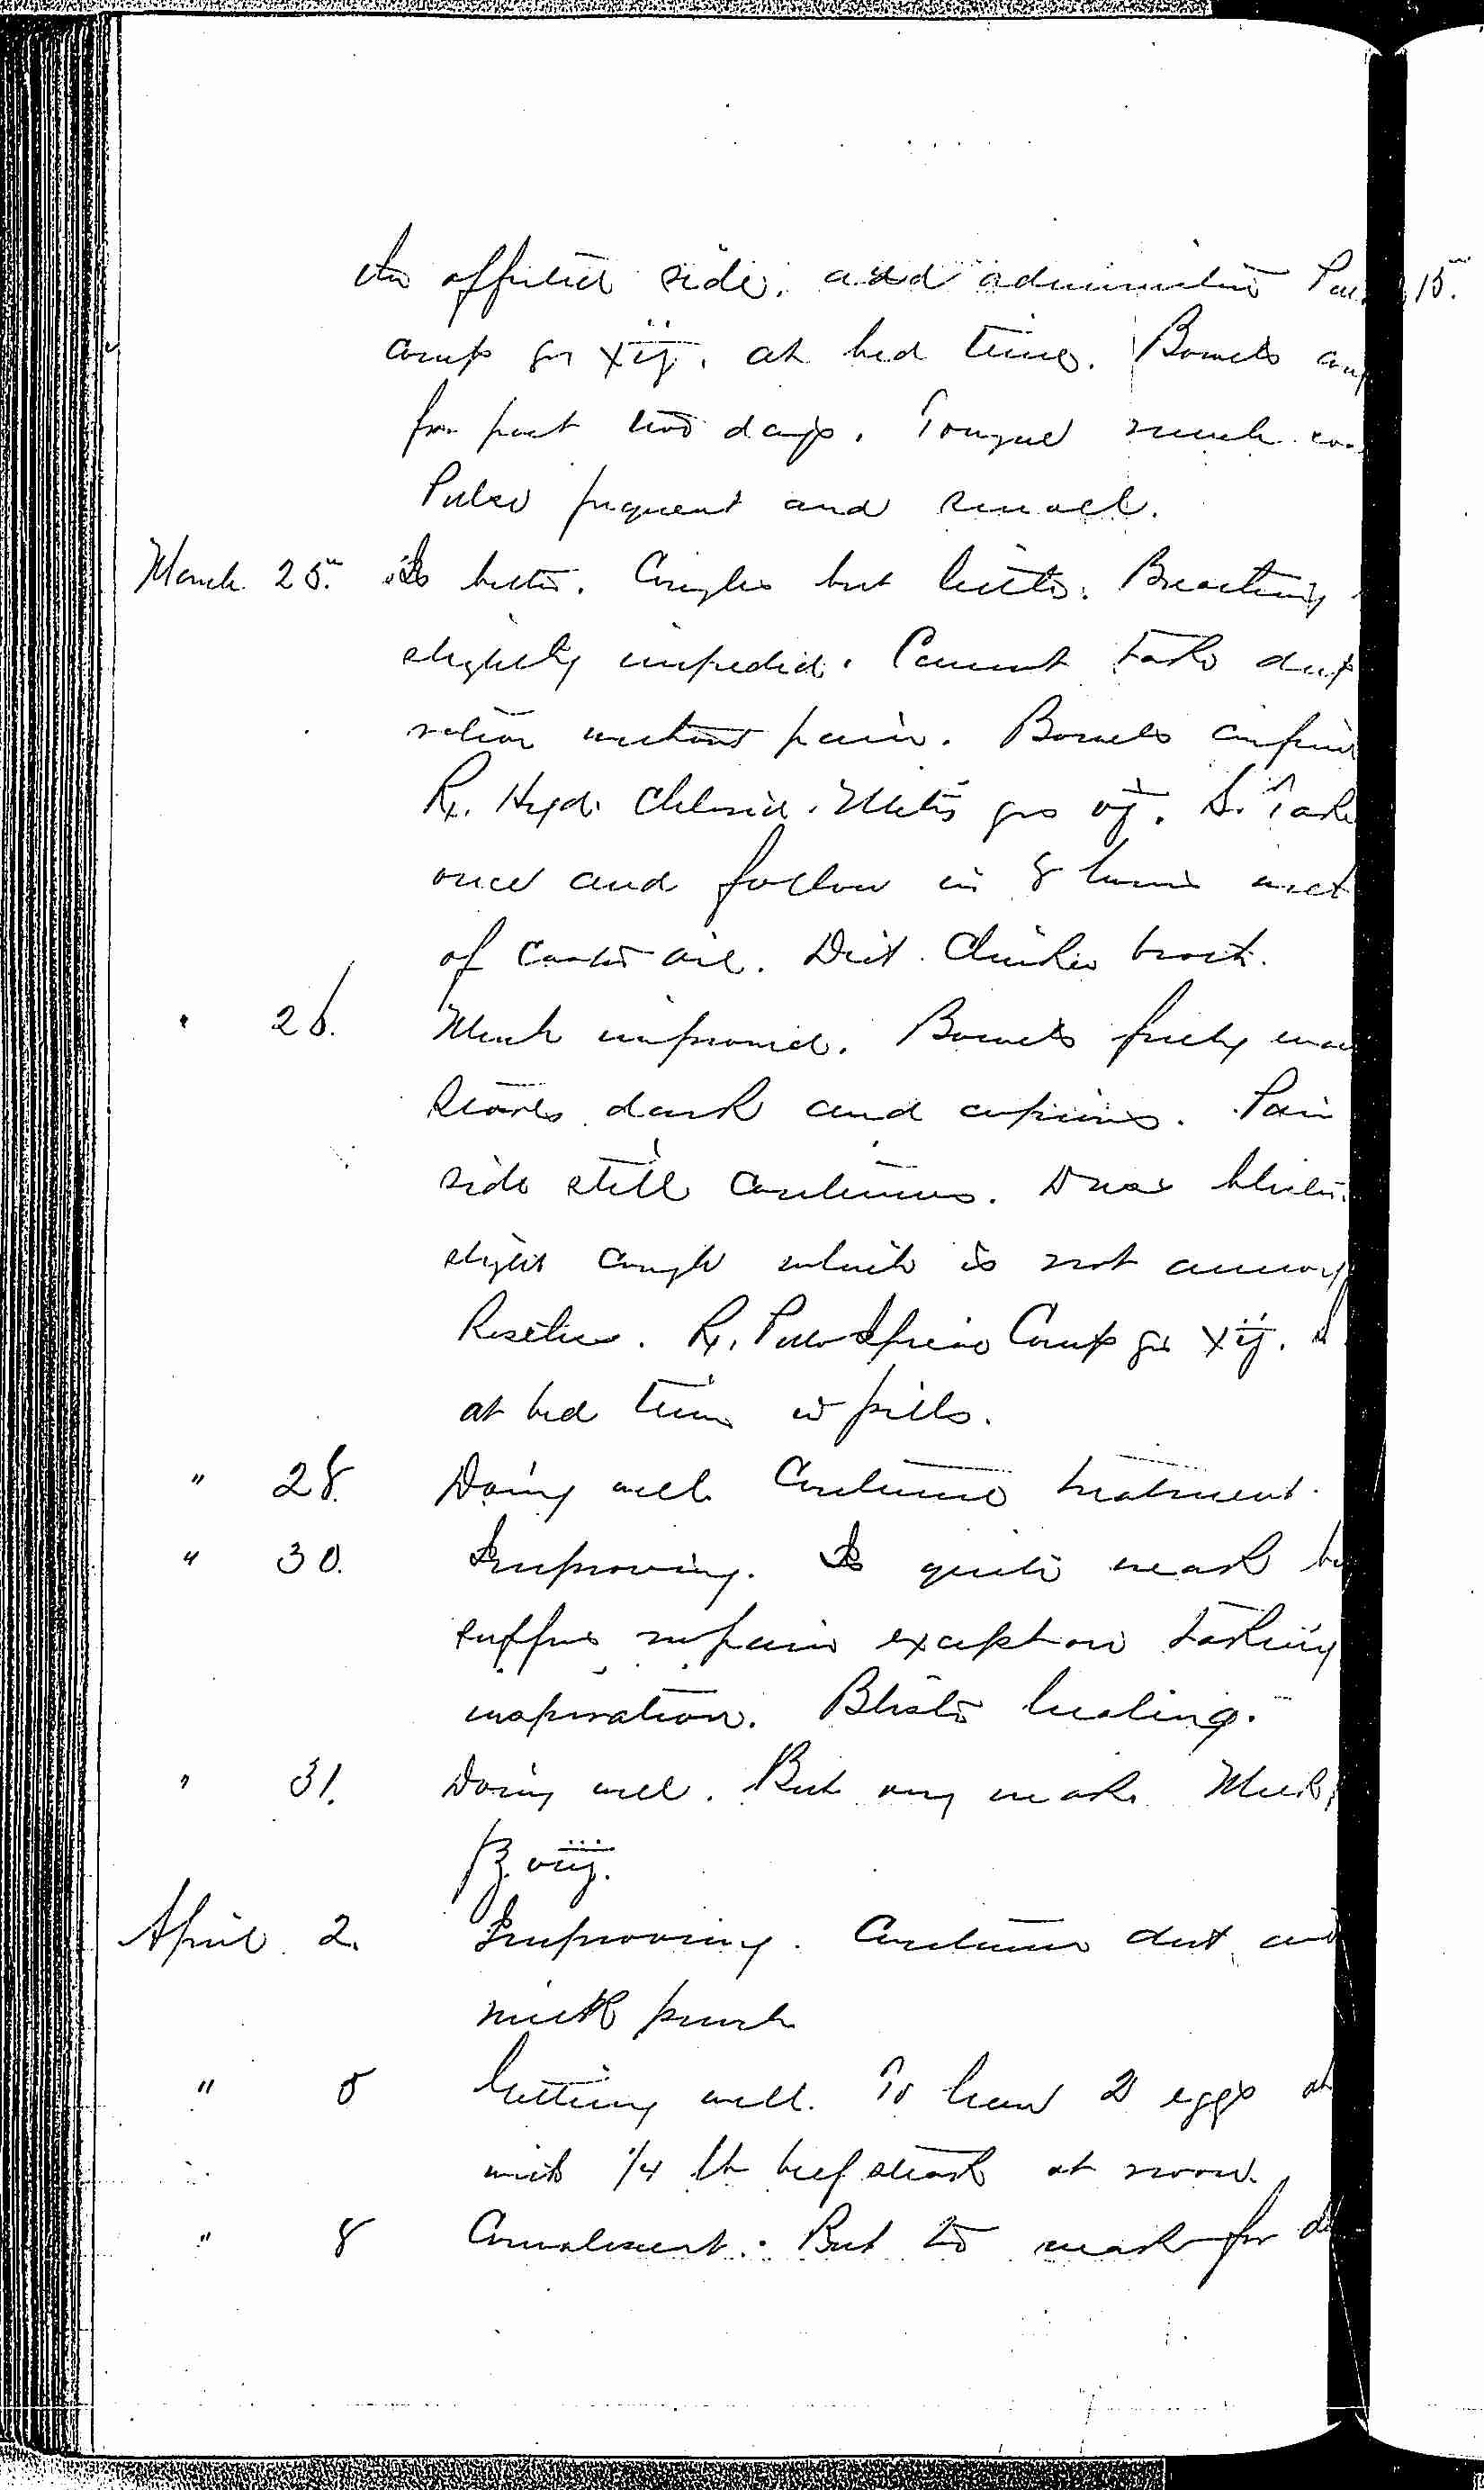 the affected side. and administer Pul 15.
comp grs xij. at bed time. Bowels
for past two days. Tongue much
Pulse frequent and small.
March 25th Is better. Coughs but little. Breathing
slightly impeded. Cannot take deep
ration without pain. Bowels confin
Rx. Hyd. Chlorid. Mitis grs vj. S. Take
once and follow in 8 hours
of Castor oil. Diet. Chicken broth.
" 26. Much improved. Bowels freely
Stools dark and copious. Pain
side still continues. Drax blister.
slight cough which is not annoy
Resting. Rx. Pulv Ipecac Comp grs xij. S
at bed time in pills.
" 28. Doing well Continue treatment.
" 30. Improving. Is quite weak
suffers no pain except on taking
inspiration. Blister healing.
" 31. Doing well. But very weak. Milk
℥ viij.
April 2. Improving. Continue diet and
milk punch
" 5 Getting well. To have 2 eggs
with 1/4 lb beef steak at noon.
" 8 Convalescent. But too weak for